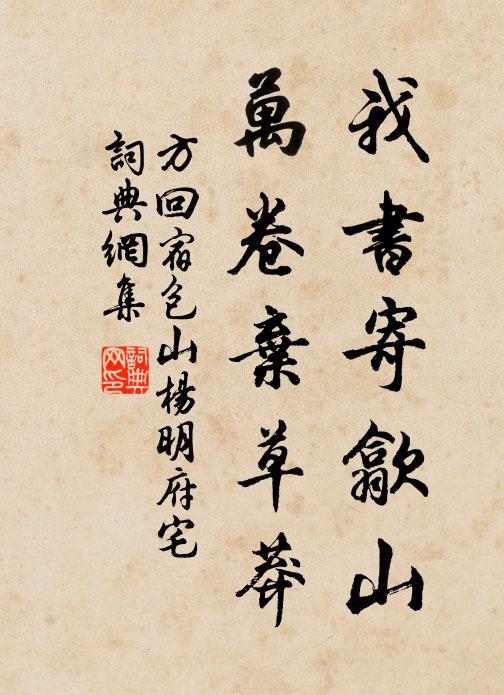 我書寄歙山
萬卷棄草莽
方回宿包山楊明府宅
詞典網集
詞典網印